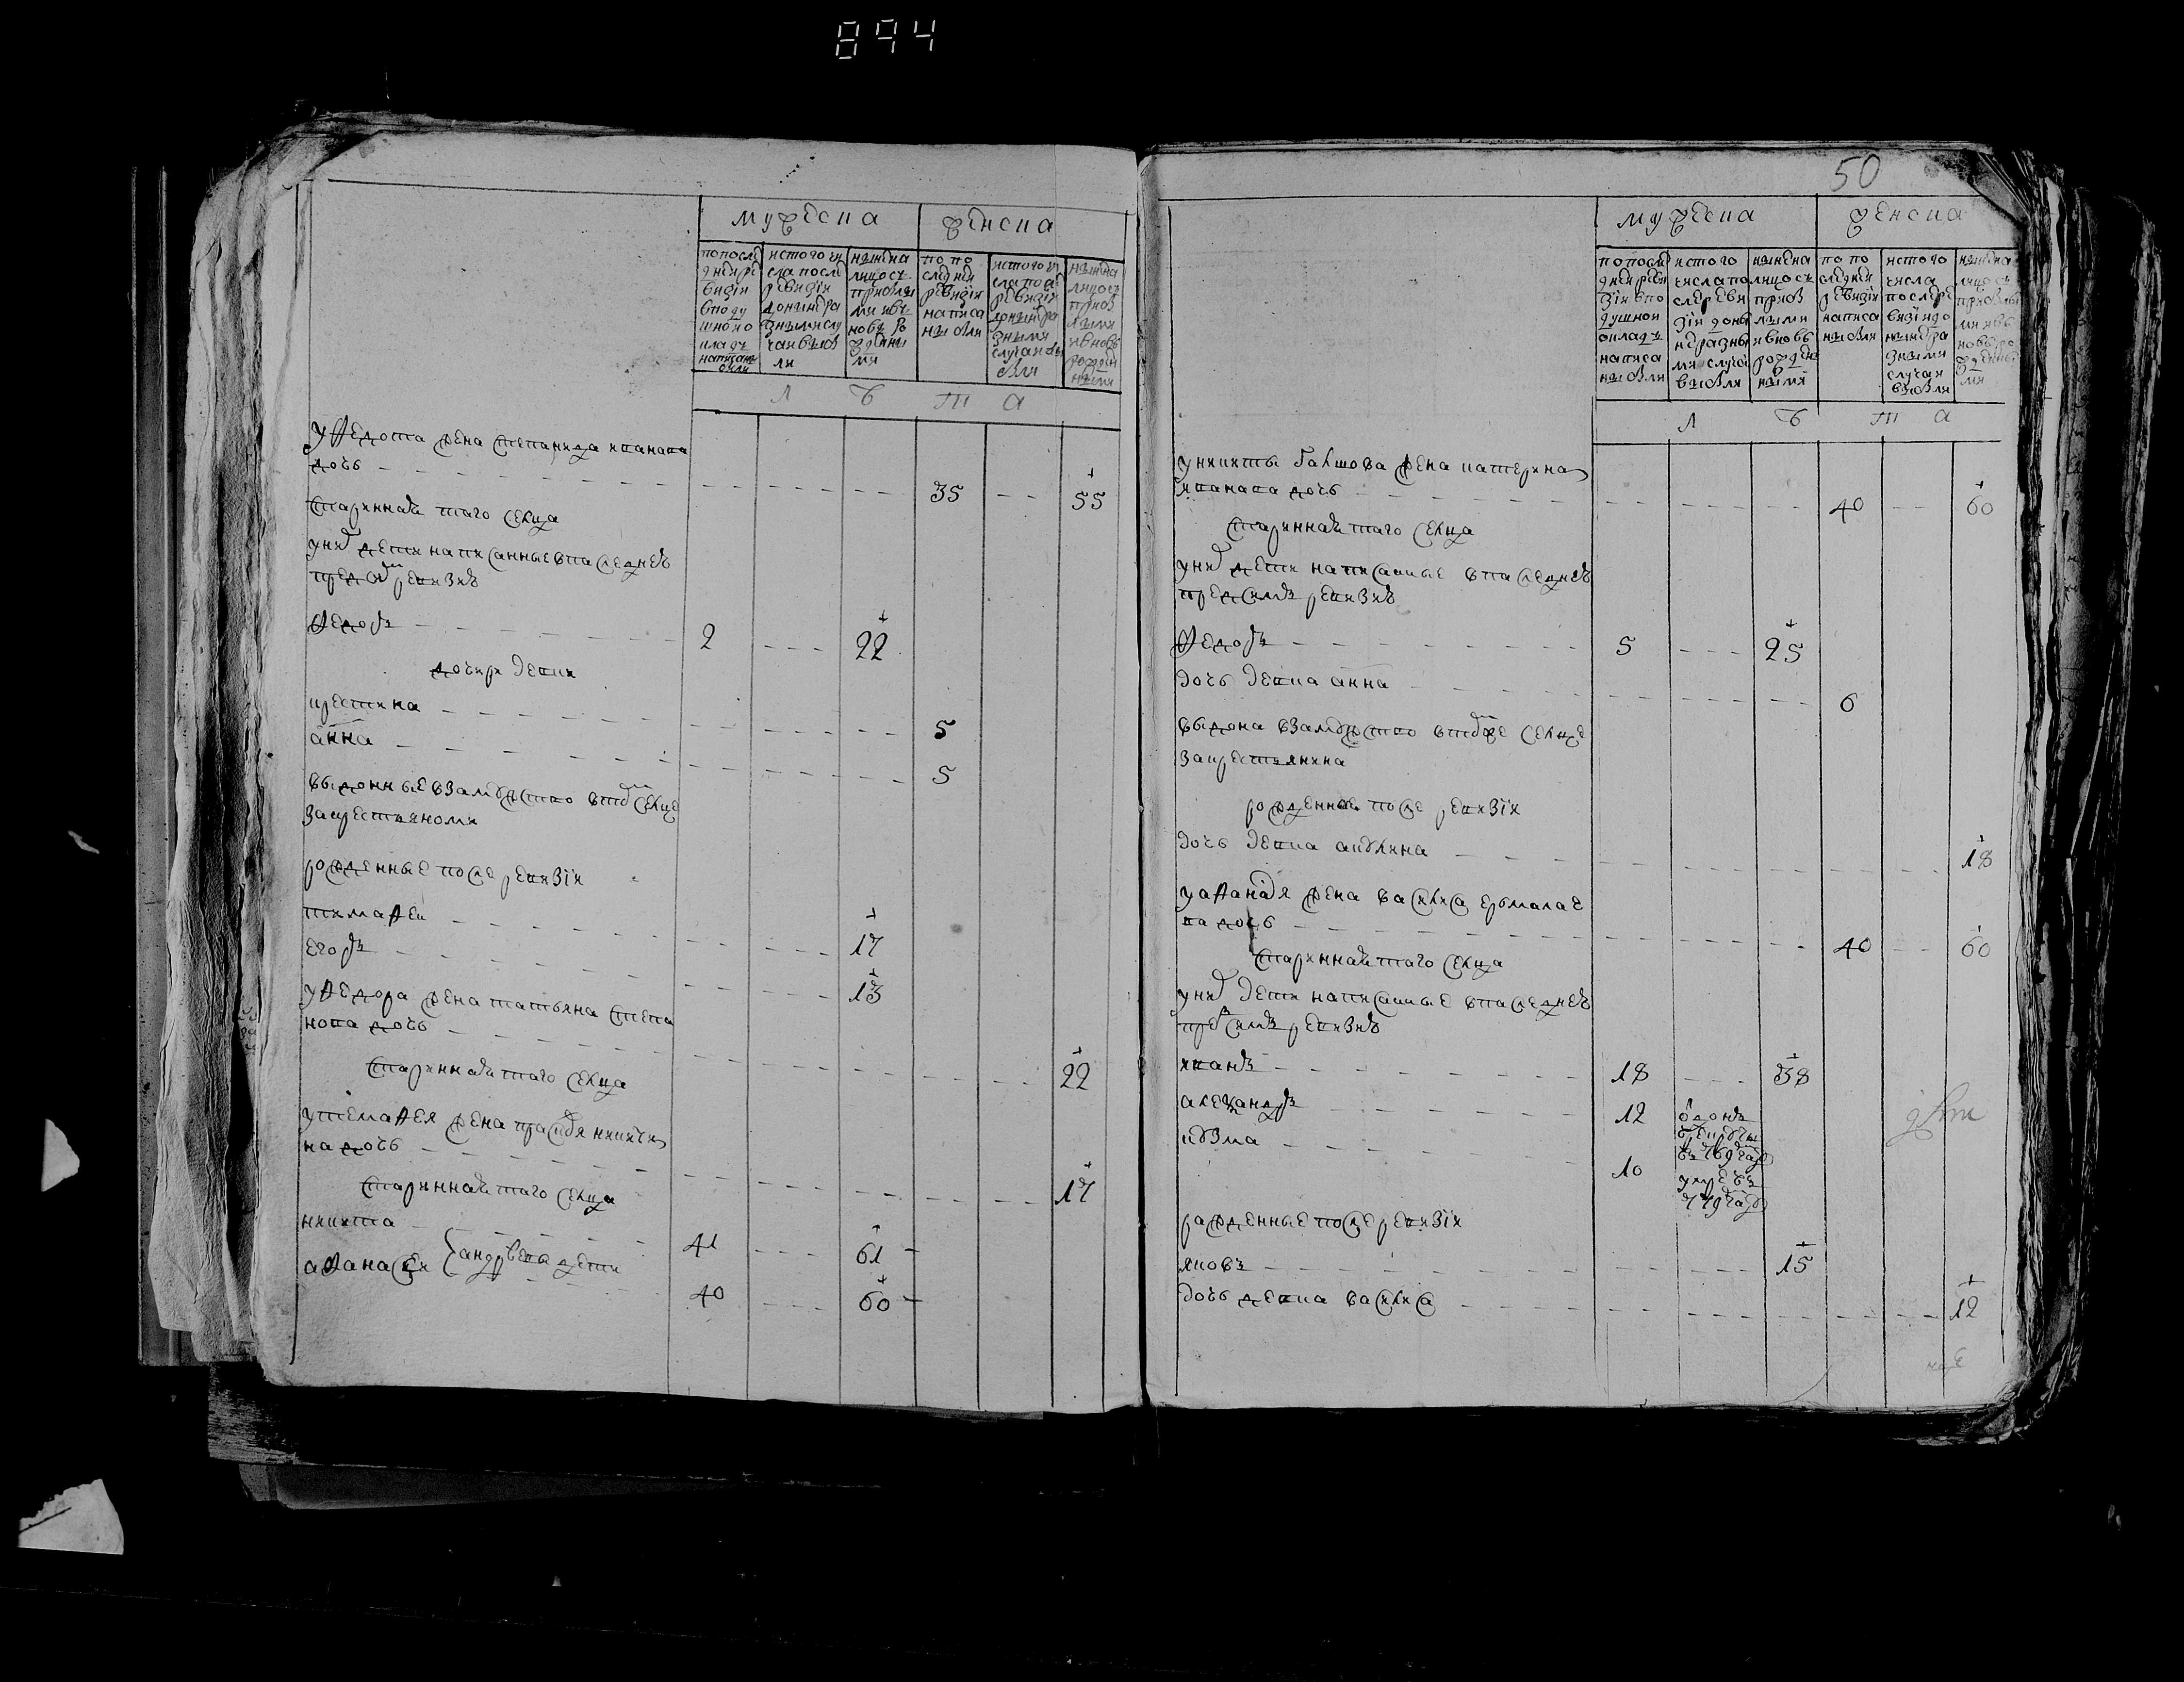 894
мужеска
женска
попосле
дней ре
визіи
вподу
шномо
кладъ
написаны
были
истого чи
сла после
ревизіи
доныне ра
зными слу
чаи выбы
ли
ныне на
лицо съ
прибылы
ми и въ
новъ ро
жденны
ми
по по
следней
ревизіи
написа
ны были
истого чи
сла посл
ревизіи
доныне ра
зными
случаи вы
были
ныне на
лицо съ
приб
лыми
ивновь
рожден
ными
Л Ѣ Т А
уфедота жена степанида иванава
дочь 35 55
стариннай таго селца
уних дети написанные впаследнеѣ
пред сим ревизиѣ
федоръ 2 22
дочери девки
крестина 5
анна 5
выдонные взамужство втом селце
закрестьяноми
рожденные после ревизіи
тимафеи 17
егоръ 13
уфедора жена татьяна степа
нова дочь 22
стариннай таго селца
утемафея жена прасковя никити
на дочь 17
стариннай таго селца
никита 41 61
афанасеи андрѣевы дети 40 60
50
мужеска
женска
попосле
дней реви
зіи впо
душной
окладъ
написа
ны были
истого
числа по
сле реви
зіи доны
не разны
ми случа
выбыли
ныне на
лицо съ
приб
лыми
ивновь
рожден
ными
по по
следней
ревизіи
написа
ны были
истого
числа
после ре
визіи до
ныне ра
зными
случаи
выбыли
ныне на
лицо съ
прибылы
ми ивъ
новь ро
жденны
ми
Л Ѣ Т А
уникиты жена катерина
иванава дочь 40 60
стариннай таго селца
уних дети написанные впаследнеѣ
пред симъ ревизиѣ
федоръ 5 25
дочь девка анна 6
выдона взамужство втомже селце
закрестьянина
рожденные после ревизіи
дочь девка акулина 18
уафанасья жена василиса ермалае
ва дочь 40 60
стариннай таго селца
уних дети написанные впаследнеѣ
пред симъ ревизиѣ
иванъ 18 38
александръ 12 одонъ
в рекруты
въ 769 году
кузма 10 умре въ
779 году
рожденные после ревизіи
яковъ 15
дочь девка василиса 12